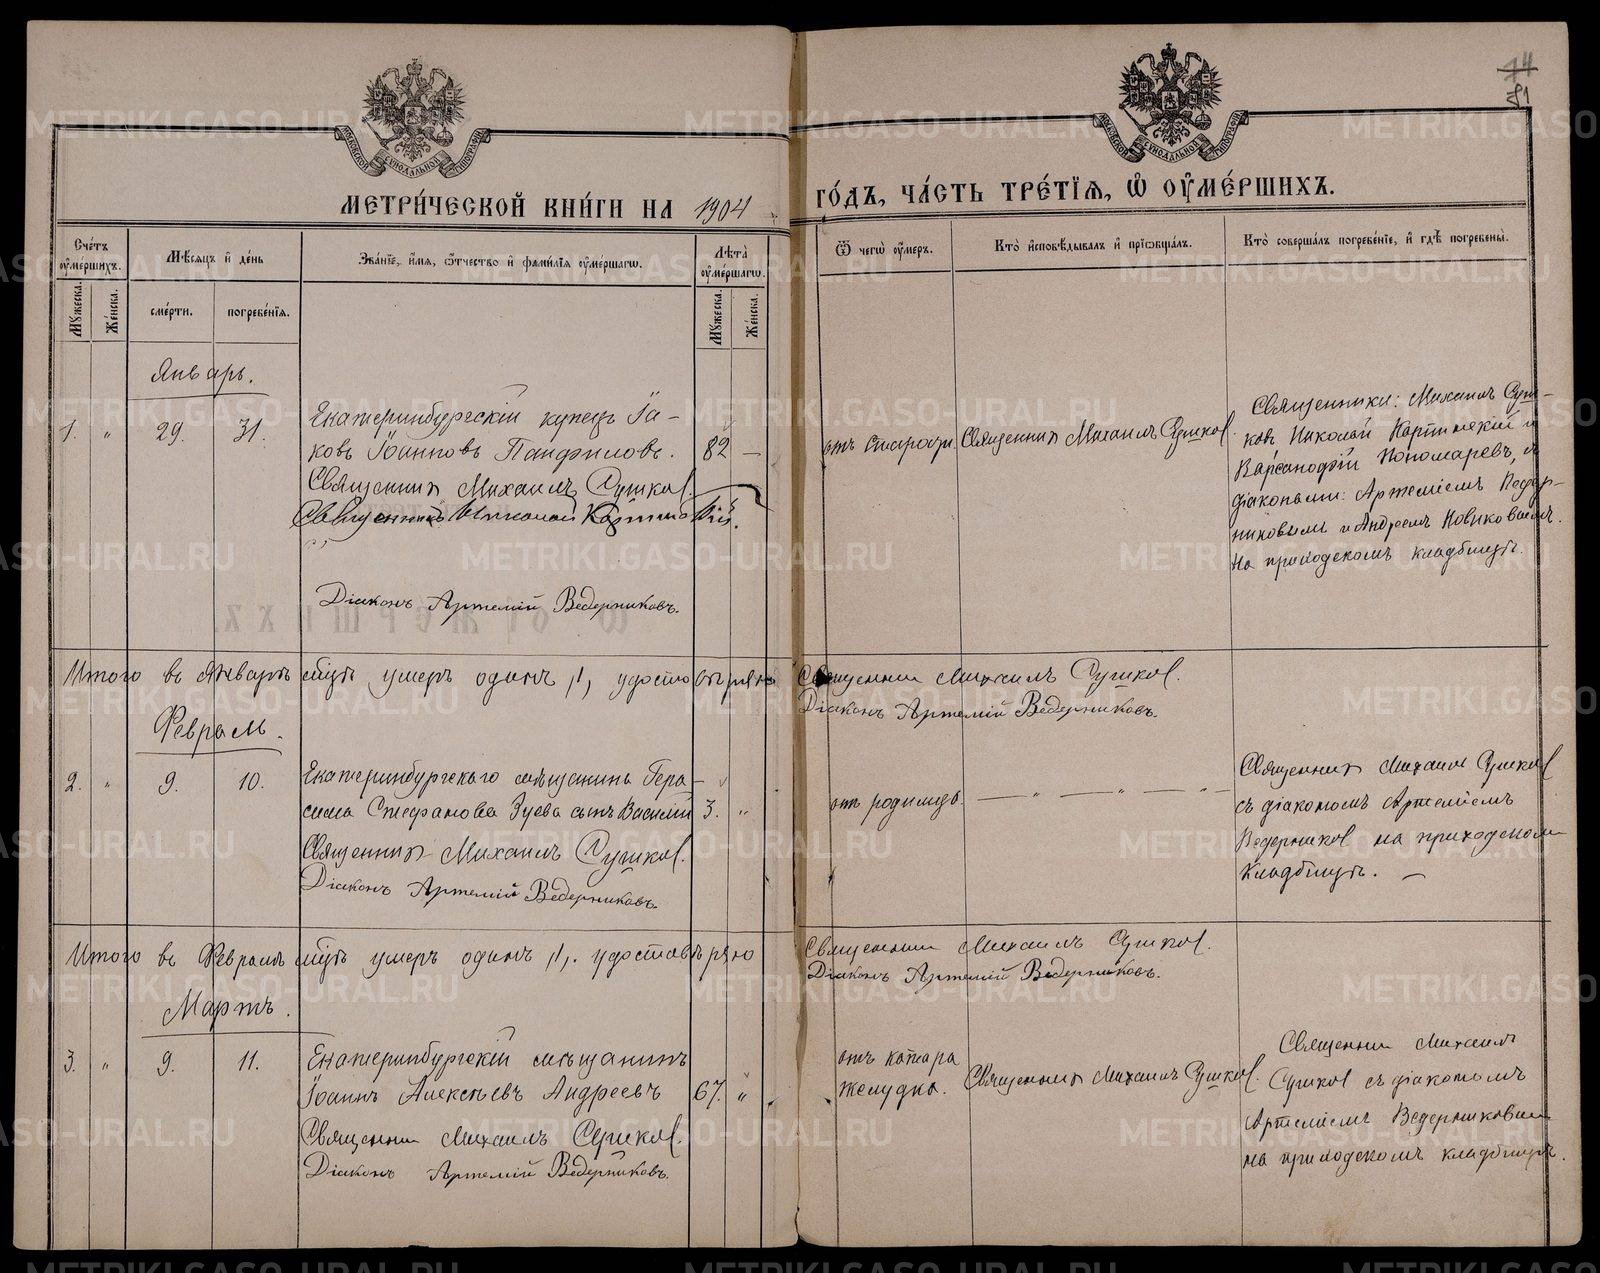 74
81
МЕТРИ́ЧЕСКОЙ КНИ́ГИ НА 1904
ГО́ДЪ, ЧА́СТЬ ТРЕ́ТІЯ, Ѡ҆ ОУ҆МЕ́РШИХЪ.
Сче́тъ оу҆ме́ршихъ.
Мѣ́сяцъ и҆ де́нь
Зва́нїе, и҆́мя, ѻ҆́тчество и҆ фами́лїя оу҆ме́ршагѡ.
Лѣ́та оу҆ме́ршагѡ.
Ѿ чегѡ̀ оу҆́меръ.
Кто̀ и҆сповѣ́дывалъ и҆ прїѡбща́лъ.
Кто̀ соверша́лъ погребе́нїе, и҆ гдѣ̀ погребены̀.
Мꙋ́жеска.
Же́нска.
сме́рти.
погребе́нїя.
Мꙋ́жеска.
Же́нска.
Январь.
1. " 29. 31.
Екатеринбургскій купецъ Іа-
ковъ Іоанновъ Панфиловъ.
82 —
Священник Михаилъ Сушков.
Священникъ Николай
Діаконъ Артемій Ведерниковъ.
отъ старости
Священник Михаилъ Сушков.
Священники: Михаилъ Суш-
ковъ Николай и
Варсанофій Пономаревъ, съ
діаконами: Артеміемъ Ведер-
никовымъ и Андреемъ Новиковымъ.
На приходскомъ кладбищѣ.
Итого въ Январѣ м̃цѣ умеръ одинъ /1/, удостовѣряю
Священник Михаилъ Сушков.
Діаконъ Артемій Ведерниковъ.
Февраль.
2. " 9. 10.
Екатеринбургскаго мѣщанина Гера-
сима Стефанова Зуева сынъ Василій
3. "
Священник Михаилъ Сушков.
Діаконъ Артемій Ведерниковъ.
отъ родимца.
— " — " — " —
Священник Михаил Сушков
съ діакономъ Артеміемъ
Ведерников на приходском
кладбищѣ. —
Итого въ Февралѣ м̃цѣ умеръ одинъ /1/. удостовѣряю
Священник Михаилъ Сушков.
Діаконъ Артемій Ведерниковъ.
Мартъ.
3. " 9. 11.
Екатеринбургскій мѣщанинъ
Іоаннъ Алексѣевъ Андреевъ
67. "
Священник Михаилъ Сушков.
Діаконъ Артемій Ведерниковъ.
отъ катара
желудка.
Священник Михаилъ Сушков.
Священник Михаил
Сушков съ діакономъ
Артеміемъ Ведерниковым
на приходскомъ кладбищѣ.
METRIKI.GASO-URAL.RU